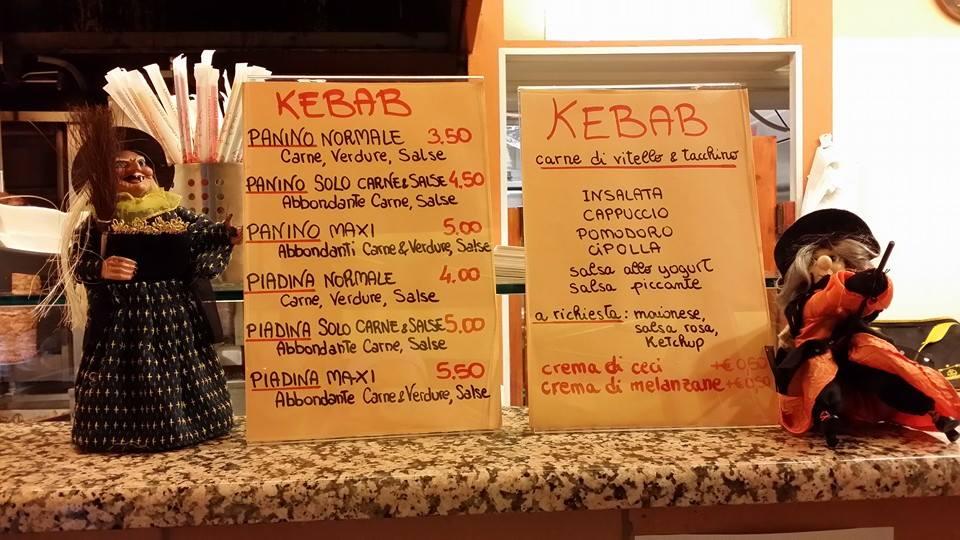 KEBAB
PANINO NORMALE 3.50
Carne, Verdure, Salse
PANINO SOLO CARNE & SALSE 4,50
Abbondante Carne, Salse
PANINO MAXI 5,00
Abbondanti Carne & Verdure, Salse
PIADINA NORMALE 4.00
Carne, Verdure, Salse
PIADINA SOLO CARNE & SALSE 5,00
Abbondante Carne, Salse
PIADINA MAXI 5,50
Abbondante Carne & Verdure, Salse
KEBAB
carne di vitello & tacchino
INSALATA
CAPPUCCIO
POMODORO
CIPOLLA
salsa allo yogurt
salsa piccante
a richiesta: maionese,
salsa rosa,
Ketchup
crema di ceci +€ 0,50
crema di melanzane +€ 0,50